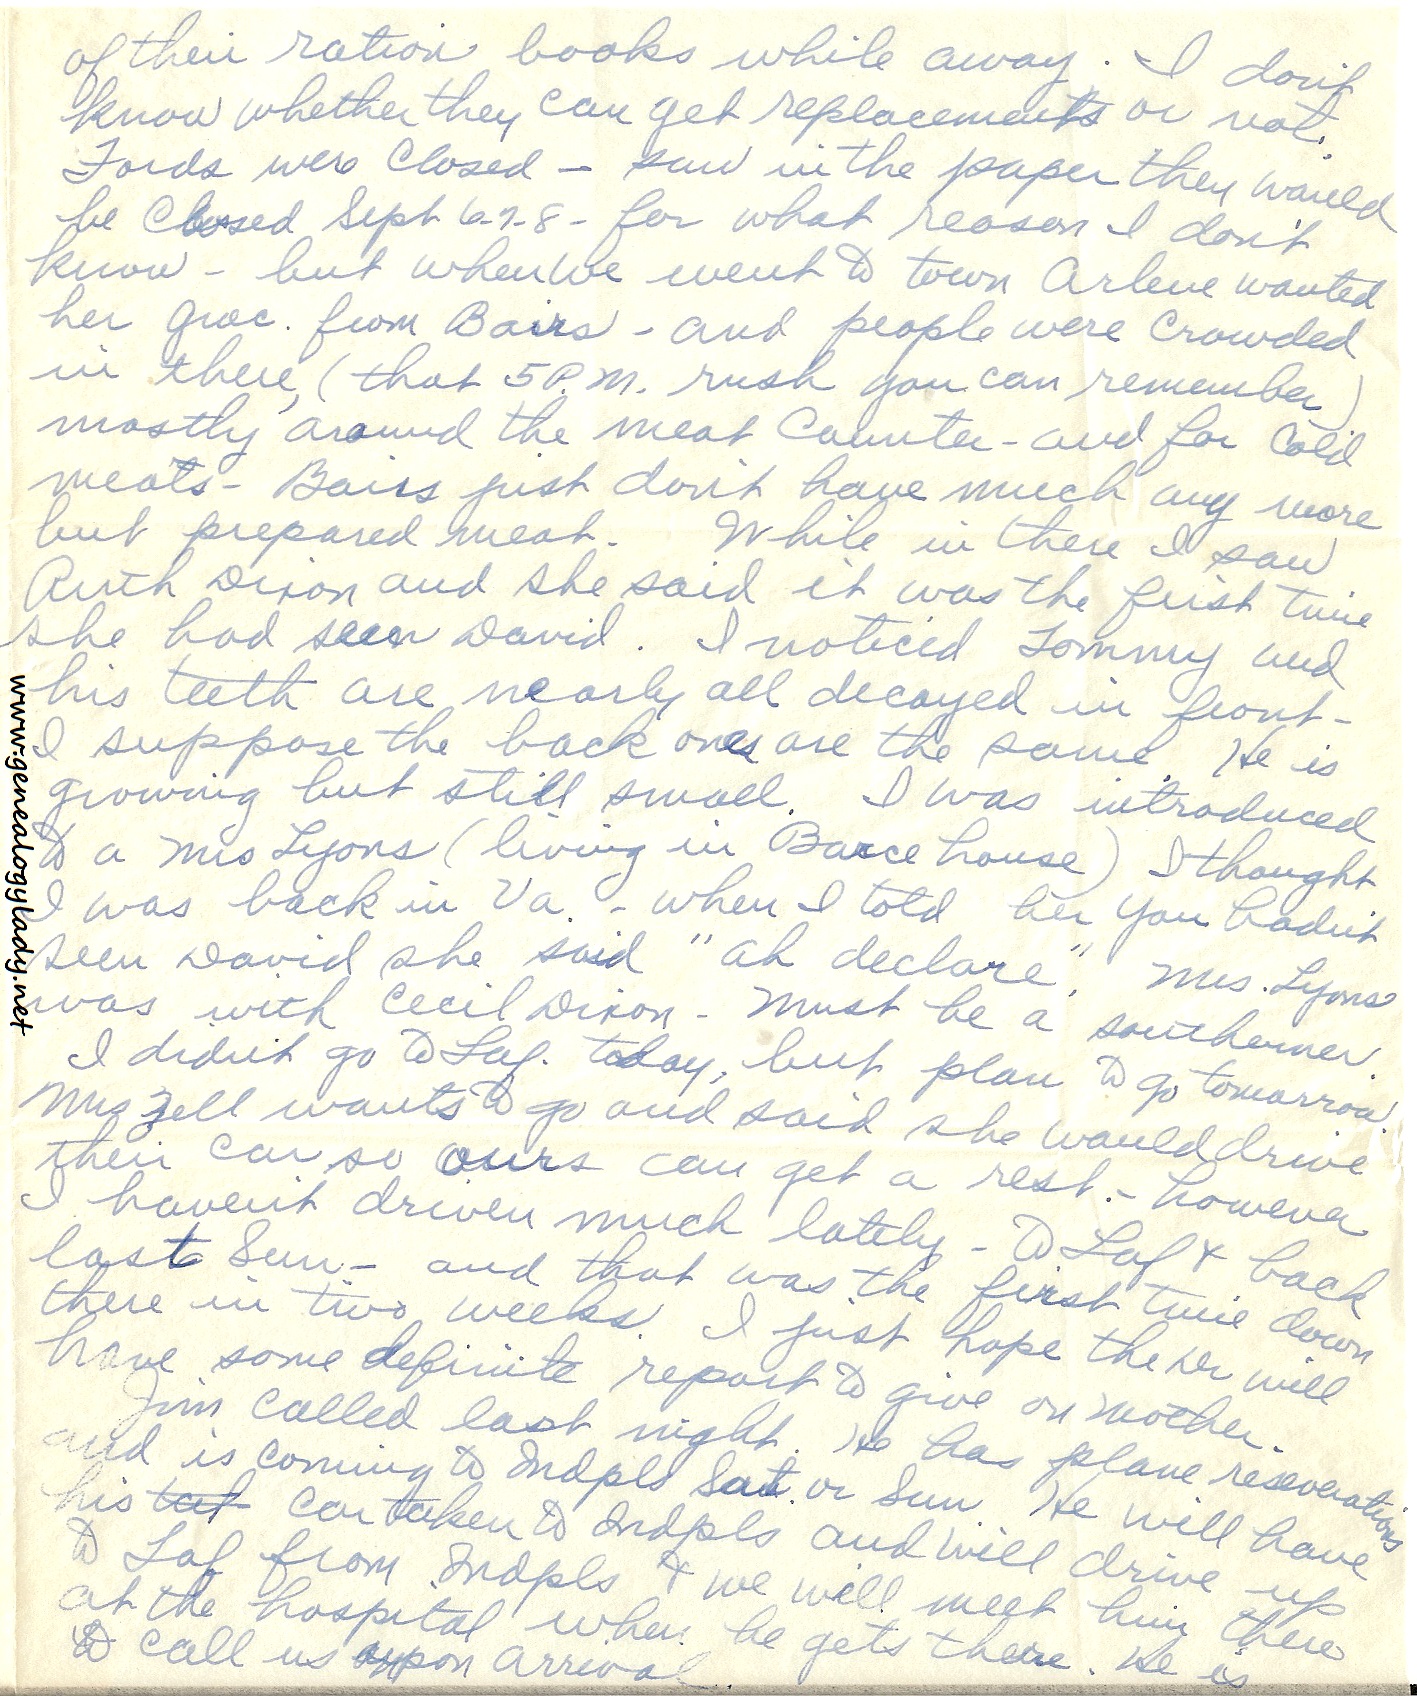 of their ration books while away. I don't
know whether they can get replacements or not.
Fords were closed - saw in the paper they would
be closed Sept 6-7-8 - for what reason I don't
know - but when we went to town Arlene wanted
her groc. from Bairs - and people were crowded
in there, (that 5 P.M. rush you can remember)
mostly around the meat counter - and for cold
meats - Bairs just don't have much any more
but prepared meat. While in there I saw
Ruth Dixon and she said it was the first time
she had seen David. I noticed Tommy and
his teeth are nearly all decayed in front -
I suppose the back ones are the same. He is
growing but still small. I was introduced
to a Mrs Lyons (living in Barce house) I thought
I was back in Va. - when I told her you hadn't
seen David she said "ah declare". Mrs. Lyons
was with Cecil Dixon - must be a southerner.
I didn't go to Laf. today, but plan to go tomorrow.
Mrs Zell wants to go and said she would drive
their car so ours can get a rest. - however
I haven't driven much lately - to Laf & back
last Sun - and that was the first time down
there in two weeks. I just hope the Dr will
have some definite report to give on mother.
Jim called last night. He has plane reseverations
and is coming to Indpls Sat. or Sun. He will have
his car taken to Indpls and will drive up
to Laf from Indpls & we will meet him there
at the hospital when he gets there. He is
to call us upon arrival
www.genealogylady.net